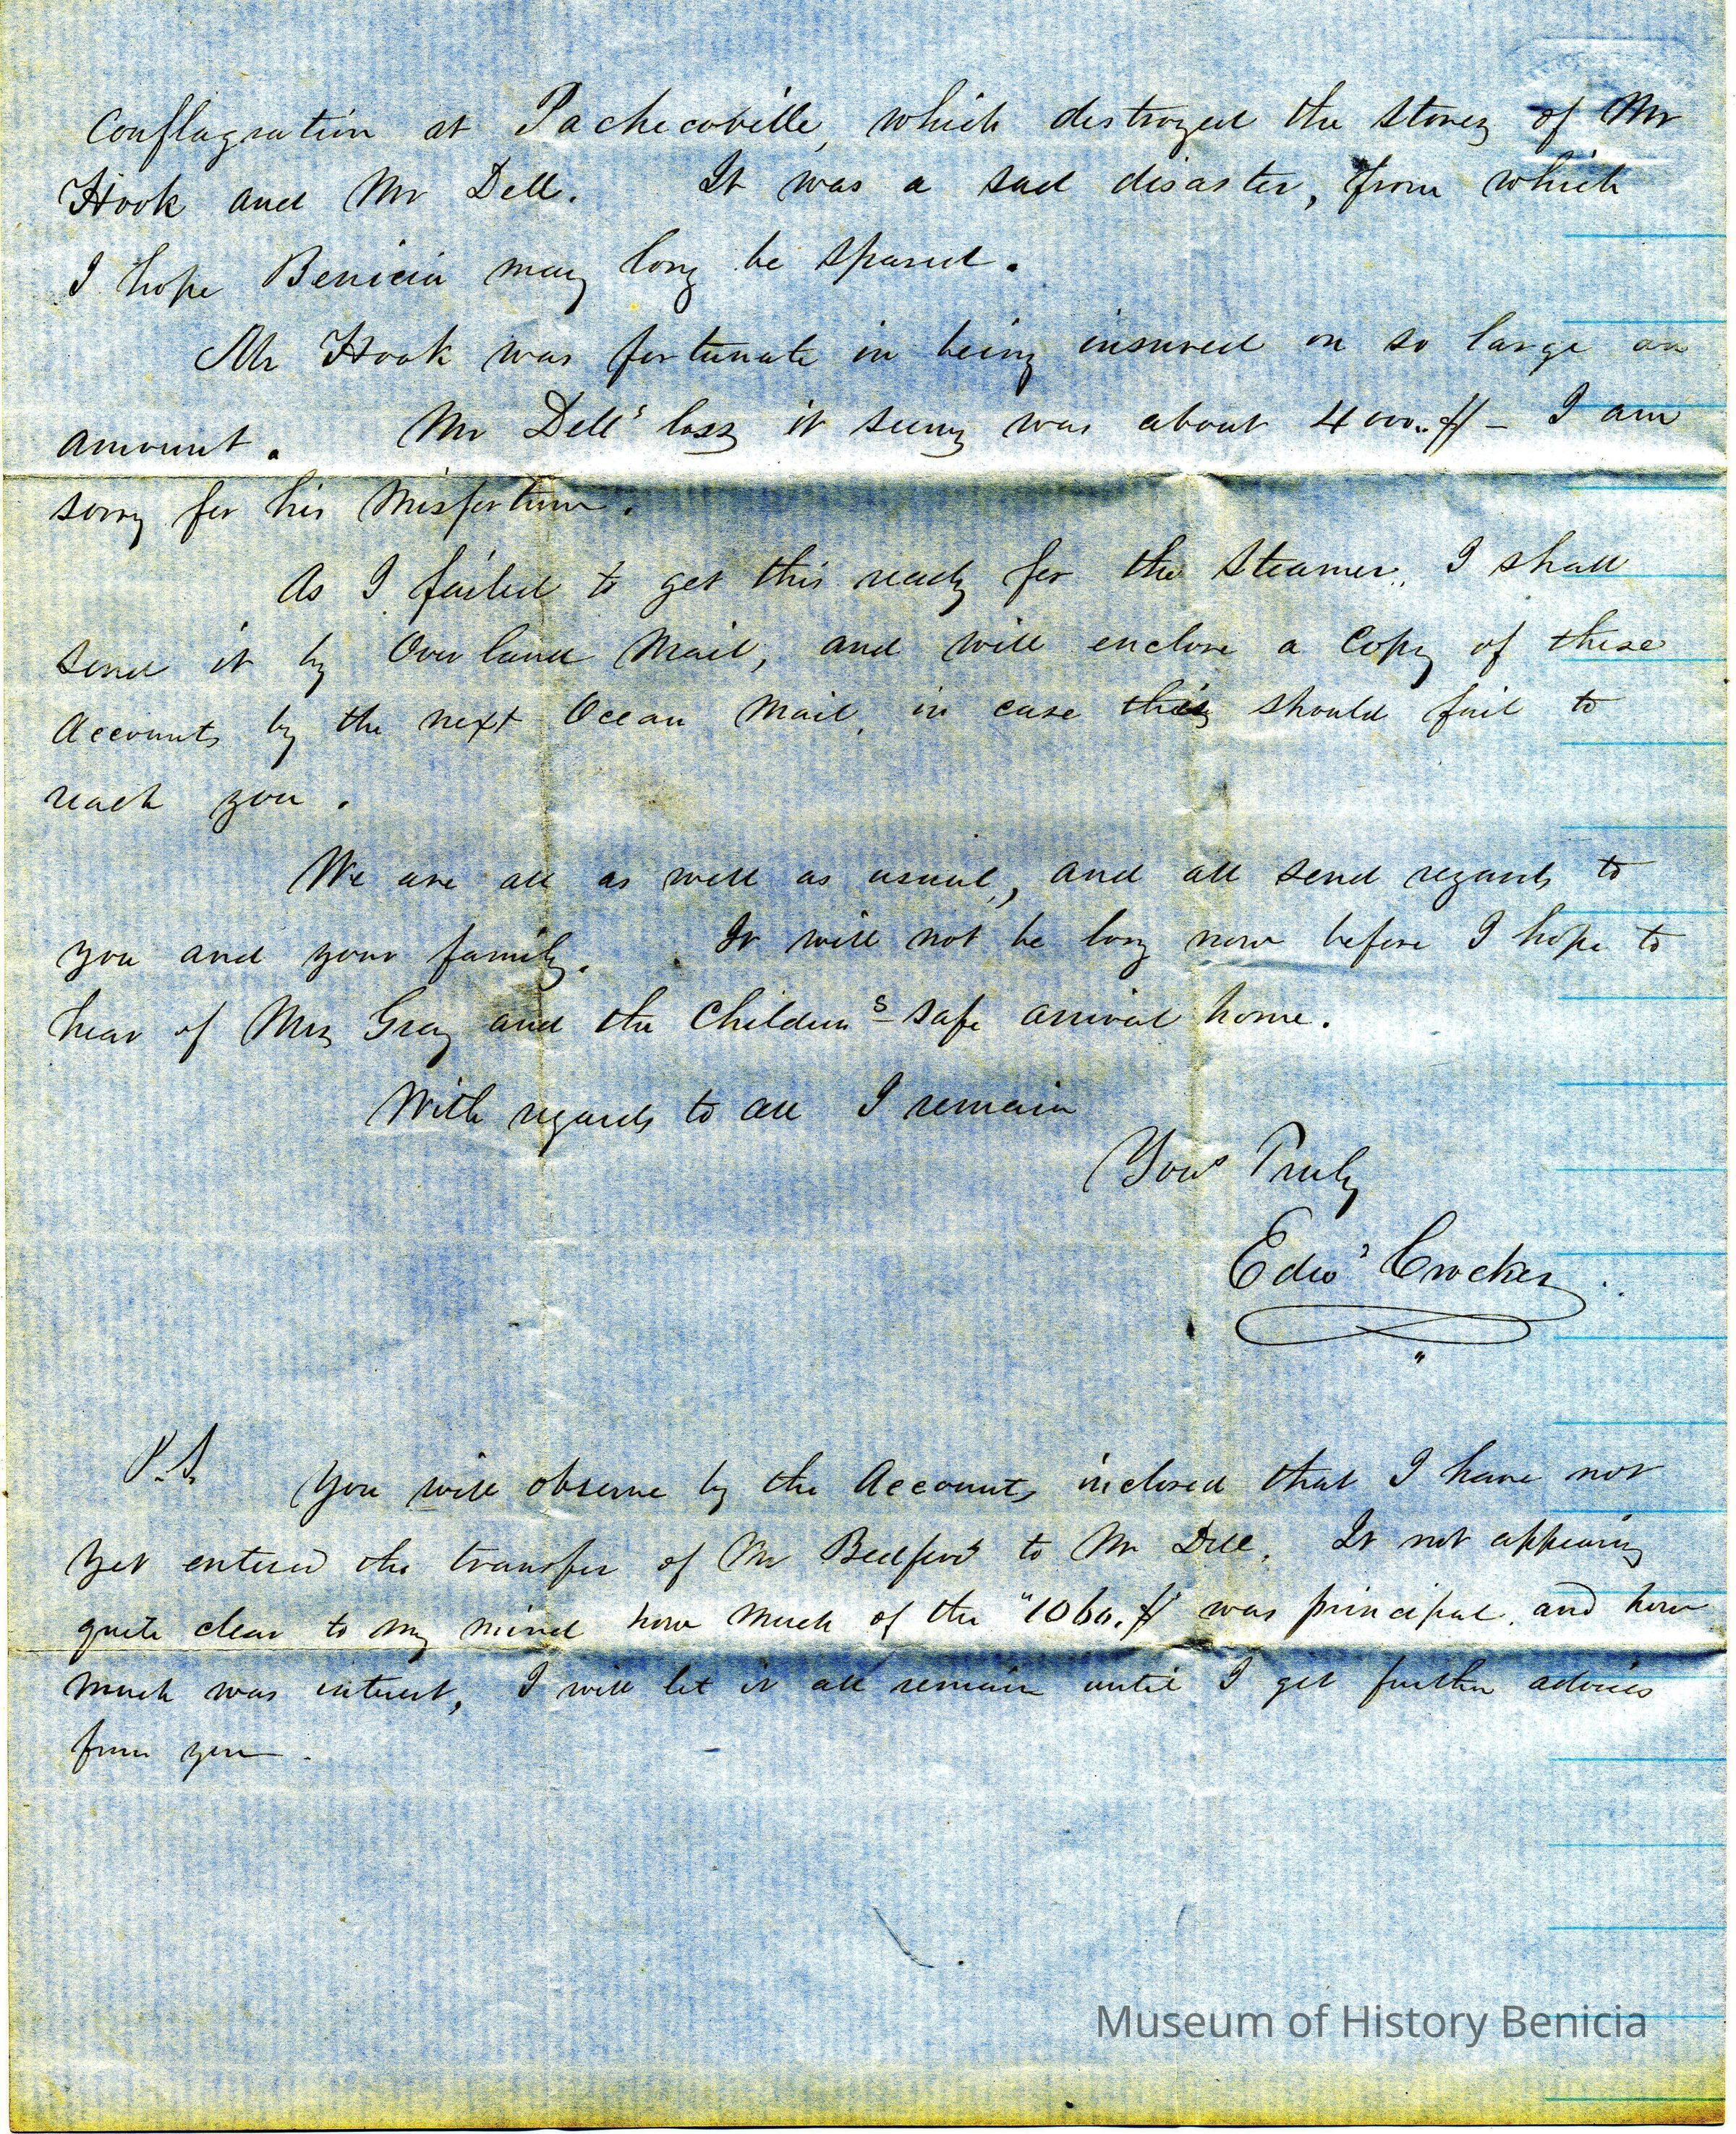 Conflagration at Pachecoville, which destroyed the stores of Mr
Hook and Mr Dell. It was a sad disaster, from which
I hope Benicia may long be spared.
Mr Hook was fortunate in being insured on so large an
amount. Mr Dell's loss it seems was about 4000.$ - I am
sorry for his Misfortune.
As I failed to get this ready for the Steamer, I shall
send it by Overland Mail, and will enclose a Copy of these
Accounts by the next Ocean Mail, in case this should fail to
reach you.
We are all as well as usual, and all send regards to
you and your family. It will not be long now before I hope to
hear of Mrs Gray and the Childrens safe arrival home.
With regards to all I remain
Yours Truly
Edwd Crocker.
P.S. You will observe by the Accounts inclosed that I have not
yet entered the transfer of Mr Bedford to Mr Dell. It not appearing
quite clear to my mind how much of the "1060.$" was principal, and how
much was interest, I will let it all remain until I get further advices
from you.
Museum of History Benicia